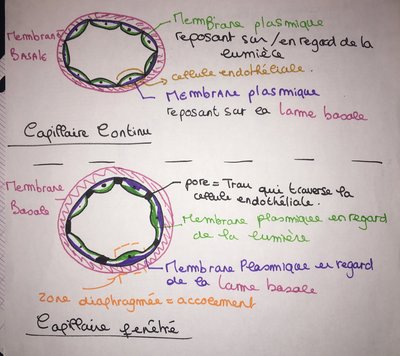 Membrane plasmique
Membrane
Basale
reposant sur/en regard de la
lumière
cellule endothéliale.
Membrane plasmique
reposant sur la lame basale
Capillaire Continu
Membrane
Basale
pore = Trou qui traverse la
cellule endothéliale.
Membrane plasmique en regard
de la lumière
Membrane Plasmique en regard
de la lame basale
Zone diaphragmée = accolement
Capillaire fenêtré